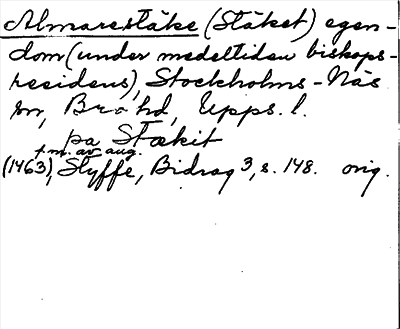 Almarestäke (Stäket) egen-
dom (under medeltiden biskops-
residens), Stockholms-Näs
sn, Bro hd, Upps. l.
pa Stækit
f.m. av aug.
(1463), Styffe, Bidrag 3, s. 148. orig.